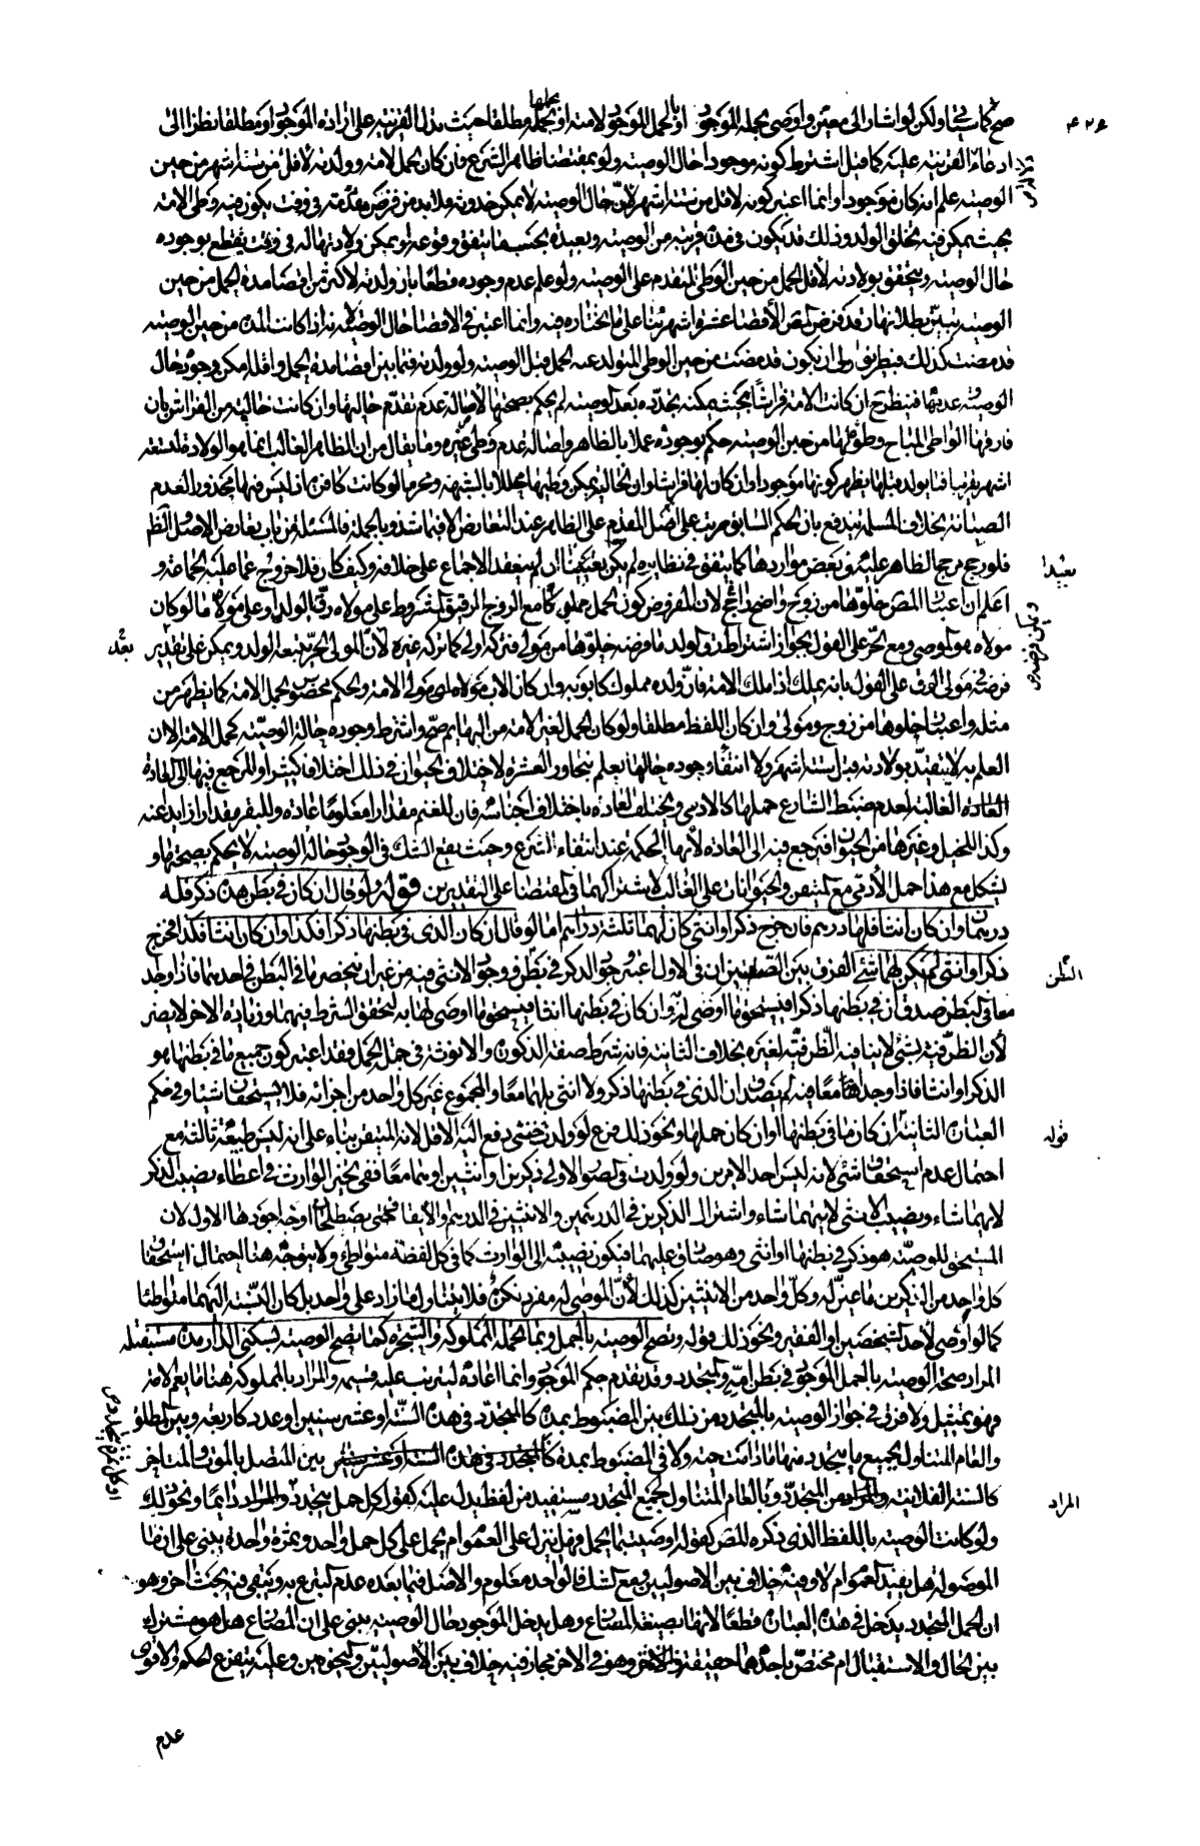 صح كما سبق ولكن لو اشار الى معين واوصى بحمله الموجود او بالحمل الموجود لامته او بحملها مطلقا حيث تدل القرينة على ارادة الموجود او مطلقا نظرا الى
ادعاء القرينة عليه كما قيل اشترط كونه موجودا حال الوصية ولو بمقتضا ظاهر الشرع فان كان الحمل لامته وولدته لاقل من ستة اشهر من حين
الوصية علم انه كان موجودا وانما اعتبر كونه لاقل من ستة اشهر لان حال الوصية لا يمكن حدوثه فلا بد من فرض مقدمته في وقت يكون فيه وطي الامة
بحيث يمكن فيه تخلق الولد وذلك قد يكون في مدة قريبة من الوصية وبعيدة بحسب ما يتفق وقوعه او يمكن ولادتها له في وقت يقطع بوجوده
حال الوصية ويتحقق بولادته لاقل الحمل من حين الوطي المتقدم على الوصية ولو علم عدم وجوده قطعا بان ولدته لاكثر من اقصا مدة الحمل من حين
الوصية تبين بطلانها وقد فرض المص الاقصا عشرة اشهر بناء على ما يختاره فيه وانما اعتبر في الاقصا حال الوصية لانه اذا كانت المدة من حين الوصية
قد مضت كذلك فبطريق اولى ان يكون قد مضت من حين الوطي المتولد عنه الحمل قبل الوصية ولو ولدته فيما بين اقصا مدة الحمل واقله امكن وجوده حال
الوصية وعدمها فينظر ح ان كانت الامة فراشا بحيث يمكن تجدده بعد الوصية لم يحكم بصحتها لاصالة عدم تقدم حالها وان كانت خالية من الفراش بان
فارقها الواطي المباح وطؤه لها من حين الوصية حكم بوجوده عملا بالظاهر واصالة عدم وطي غيره وما يقال من ان الظاهر الغالب انما هو الولادة لتسعة
اشهر تقريبا فما يولد قبلها يظهر كونها موجودا وان كان لها فراش وان الخالية يمكن وطيها محللا بالشبهة ومحرما لو كانت كافرة اذ ليس فيها محذور العدم
الصيانة بخلاف المسلمة يندفع بان الحكم السابق مرتب على الاصل المقدم على الظاهر عند التعارض الا فيما شذ وبالجملة فالمسئلة من باب تعارض الاصل والظم
فلو رجح مرجح الظاهر عليه في بعض مواردها كما يتفق في نظايره لم يكن بعيدا ان لم ينعقد الاجماع على خلافه وكيف كان فلا خروج عما عليه الجماعة و
اعلم ان اعتبار المص خلوها من زوج واضح لان المفروض كون الحمل مملوكا مع الزوج الرقيق المشروط على مولاه رق الولد او على مولاه ما لو كان
مولاه هو الموصي ومع الحر على القول بجواز اشتراط رق الولد فاما فرضه خلوها من مولى فتركه اولى كما تركه غيره لان المولى الحر يتبعه الولد ويمكن على تقدير
فرضه في مولى الرق على القول بانه يملك اذا ملك الامة فان ولده مملوك كابويه وان كان الاب مولاه اي مولى الامة والحكم مخصوص بحمل الامة كما يظهر من
مثله واعتبار خلوها من زوج ومولى وان كان اللفظ مطلقا ولو كان الحمل لغير الامة من البهايم صح واشترط وجوده حالة الوصية كحمل الامة الا ان
العلم به لا يتقيد بولادته قبل ستة اشهر ولا انتفاء وجوده حالها يعلم بتجاوز العشرة لاختلاف الحيوان في ذلك اختلافا كثيرا والمرجع فيها الى العادة
العادة الغالبة لعدم ضبط الشارع حملها كالادمي ويختلف العادة باختلاف اجناسه فان للغنم مقدارا معلوما عادة وللبقر مقدارا زايدا عنه
وكذا للخيل وغيرها من الحيوان فيرجع فيه الى العادة لانها المحكمة عند انتفاء الشرع وحيث يقع الشك في الوجود حالة الوصية لا يحكم بصحتها و
يشكل مع هذا حمل الادمي مع المتيقن والحيوانات على الغالب لاشتراكهما في المقتضا على التقديرين قوله ولو قال ان كان في بطن هذه ذكر فله
درهمان وان كان انثا فلها درهم فان خرج ذكر او انثى كان لهما ثلثة دراهم اما لو قال ان كان الذي في بطنها ذكرا فكذا وان كان انثا فكذا فخرج
ذكر وانثى لم يكن لهما شئ الفرق بين الصيغتين ان في الاول اعتبر وجود الذكر في بطن ووجود الانثى فيه من غير ان ينحصر ما في البطن في احدهما فاذا وجد
معا في البطن صدق ان في بطنها ذكرا فيستحق ما اوصى له وان كان في بطنها انثا فيستحق ما اوصى لها به لتحقق الشرط فيهما وزيادة الاخر لا يضر
لان الظرفية بشئ لا ينافيه الظرفية لغيره بخلاف الثانية فانه شرط صفة الذكورة والانوثة في جملة الحمل فقد اعتبر كون جميع ما في بطنها هو
الذكر او انثا فاذا وجدا معا فيه لم يصدق ان الذي في بطنها ذكر ولا انثى بل هما معا والمجموع غير كل واحد من اجزائه فلا يستحقان شيئا وفي حكم
العبارة الثانية ان كان ما في بطنها او ان كان حملها ونحو ذلك فرع لو ولدت خنثى دفع اليه الاقل لانه المتيقن بناء على انه ليس طبيعة ثالثة مع
احتمال عدم استحقاق شئ لانه ليس احد الامرين ولو ولدت في الصورة الاولى ذكرين او انثيين او هما معا ففي تخير الوارث في اعطاء نصيب الذكر
لايهما شاء ونصيب الانثى لايهما شاء واشتراك الذكرين في الدرهمين والانثيين في الدرهم والايقاف حتى يصطلحا اوجه اجودها الاول لان
المستحق للوصية هو ذكر في بطنها او انثى وهو صادق عليهما فيكون تعيينه الى الوارث كما في كل لفظة متواطئ ولا يتوجه هنا احتمال استحقاق
كل واحد من الذكرين ما عين له وكل واحد من الانثيين كذلك لان الموصى له مفرد نكرة فلا يتناول ما زاد على واحد بل كان النسبة اليهما متواطئا
كما لو اوصى لاحد الشخصين او الفقير ونحو ذلك قوله وتصح الوصية بالحمل وبما تحمله المملوكة والشجرة كما يصح الوصية بسكنى الدار مدة مستقبلة
المراد صحة الوصية بالحمل الموجود في بطن امه والمتجدد وقد تقدم حكم الموجود وانما اعاده ليترتب عليه قسيمه والمراد بالمملوكة هنا ما يعم الامة
وهو تمثيل ولا فرق في جواز الوصية بالمتجدد من ذلك بين المضبوط بمدة كالمتجدد في هذه السنة او عشر سنين او عدد كاربعة وبين المطلق
والعام المتناول لجميع ما يتجدد منها ما دامت حية ولا في المضبوط بمدة بين المتصل بالموت والمتاخر
كالسنة الفلانية والمراد من المتجدد وبالعام المتناول لجميع المتجدد مستفيد من لفظ يدل عليه كقوله كل حمل يتجدد دائما ونحو ذلك
ولو كانت الوصية باللفظ الذي ذكره المص كقوله اوصيت بما تحمل فهل ينزل على العموم ام يحمل على كل حمل واحد وثمرة واحدة يبنى على ان ما
الموصولة هل يفيد العموم ام لا وفيه خلاف بين الاصوليين ومع الشك فالواحد معلوم والاصل فيما بعده عدم التبرع به ويبقى فيه بحث اخر وهو
ان الحمل المتجدد يدخل في هذه العبارة قطعا لانها بصيغة المضارع وهل يدخل الموجود حال الوصية يبنى على ان المضارع هل هو مشترك
بين الحال والاستقبال ام مختص باحدهما حقيقة وهو في الاخر مجاز فيه خلاف بين الاصوليين والنحويين وعليه يتفرع الحكم والاقوى
عدم
۴۲۶
بعيدا
الظن
قوله
المراد
بعد